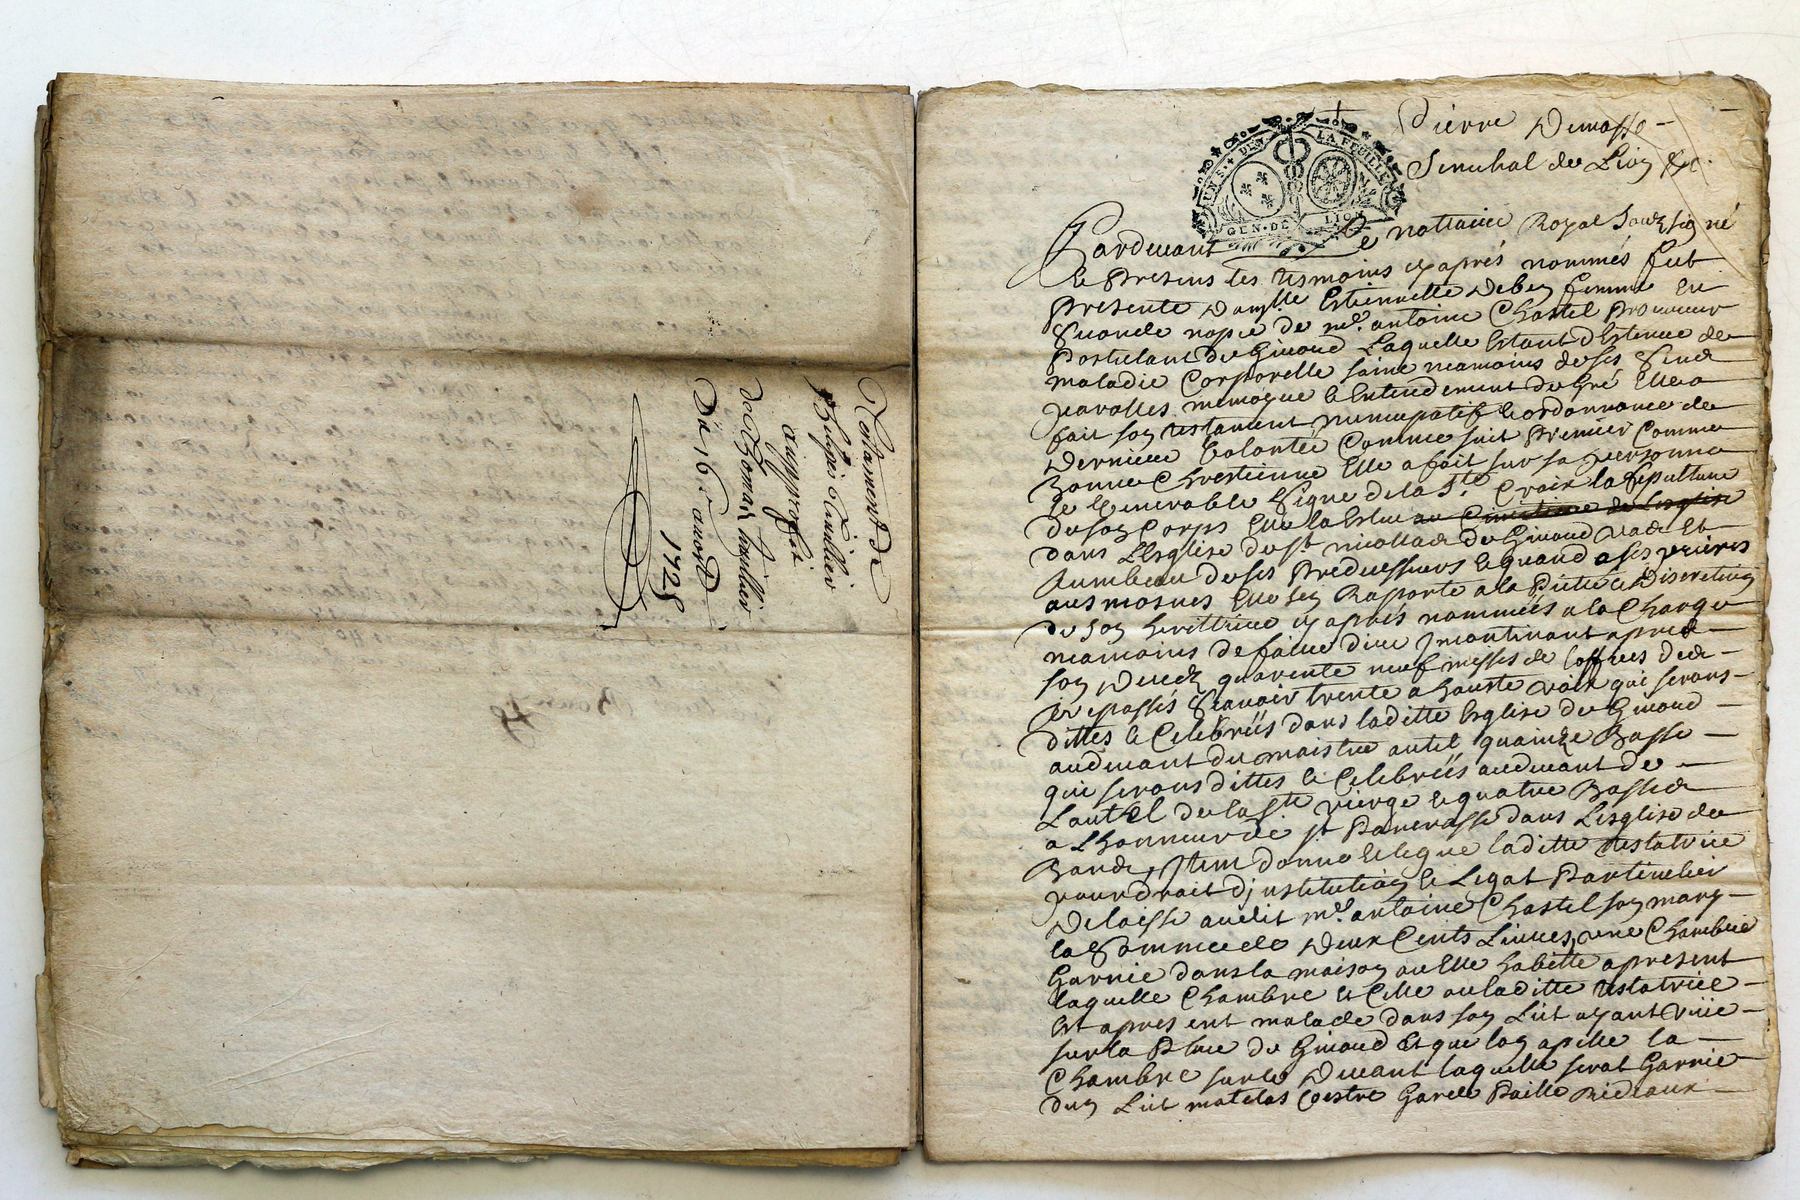 Testament de
Philipe Teuillier
au proffit
de Thomas
Du 16e aoust
1725
GEN · DE LION
LA FEUILLE
Pierre Demasso
Senechal de Lion &c.
Pardevant Le nottaire Royal Soubsigné
Et Presens les tesmoins cy après nommés fut
Presente dam.lle Estiennette femme En
nopce de me. antoine Chastel Procureur
Postulant de Givord Laquelle Estant detenue de
maladie Corporelle saine neamoins de ses Sens
parolles memoyre et Entendement de Gré Elle a
fait son testament nuncupatif et ordonnance de
Derniere Volontée Comme suit Premier Comme
Bonne Chrestienne Elle a fait sur sa personne
le Venerable Signe de la Ste. Croix la sepulture
de son Corps Elle la Eslue au Cimetiere de Lesglise
dans L'Esglise de st. nicollas de Givord et
Tumbeau de ses Predecesseurs Et quand a ses prieres
aumosnes Elle sen Raporte a la Pieté et Discretion
de son heritiere cy après nommées a la Charge
neamoins de faire dire Jncontinant apres
son Deceds quarente neuf messes de loffices des
trepassés Scavoir trente a haute voix qui serons
dittes et Celebréés dans laditte Esglise de Givord
audevant du maistre autel, quainze Basse
qui serons dittes et Celebréés audevant de
Lautel de la ste vierge et quatre Basses
a Lhonneur de st Pancrasse dans Lesglise de
Bans, Jtem donne et legue laditte testatrice
pour droit d'institution et Legat Particulier
Delaisse audit me. antoine Chastel son mary
la Somme de Deux Cents Livres, une Chambre
Garnie dans la maison ou Elle habitte a present
laquelle Chambre et Celle ou laditte testatrice
Est apresent malade dans son Lict ayant vüe
sur la Place de Givord Et que lon apelle la
Chambre sur le Devant laquelle serat Garnie
dun Lict matelas Coestre Garde Paille Rideaux